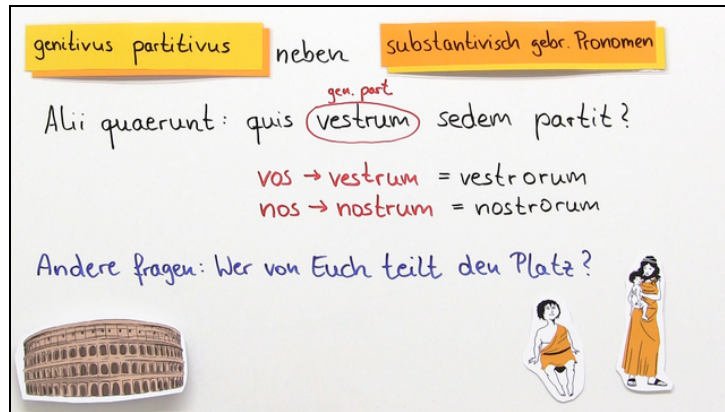 genitivus partitivus neben substantivisch gebr. Pronomen
gen. part
Alii quaerunt: quis vestrum sedem partit?
vos → vestrum = vestrorum
nos → nostrum = nostrorum
Andere fragen: Wer von Euch teilt den Platz?